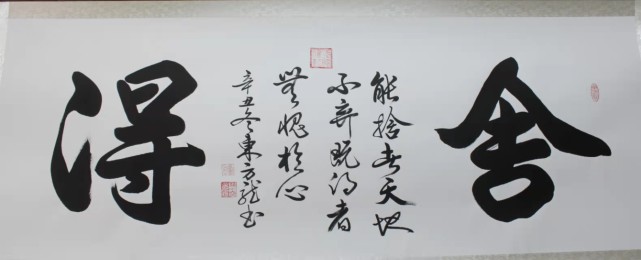 舍
能捨者天地
不弃既得者
無愧於心
得
辛丑冬東方龍书